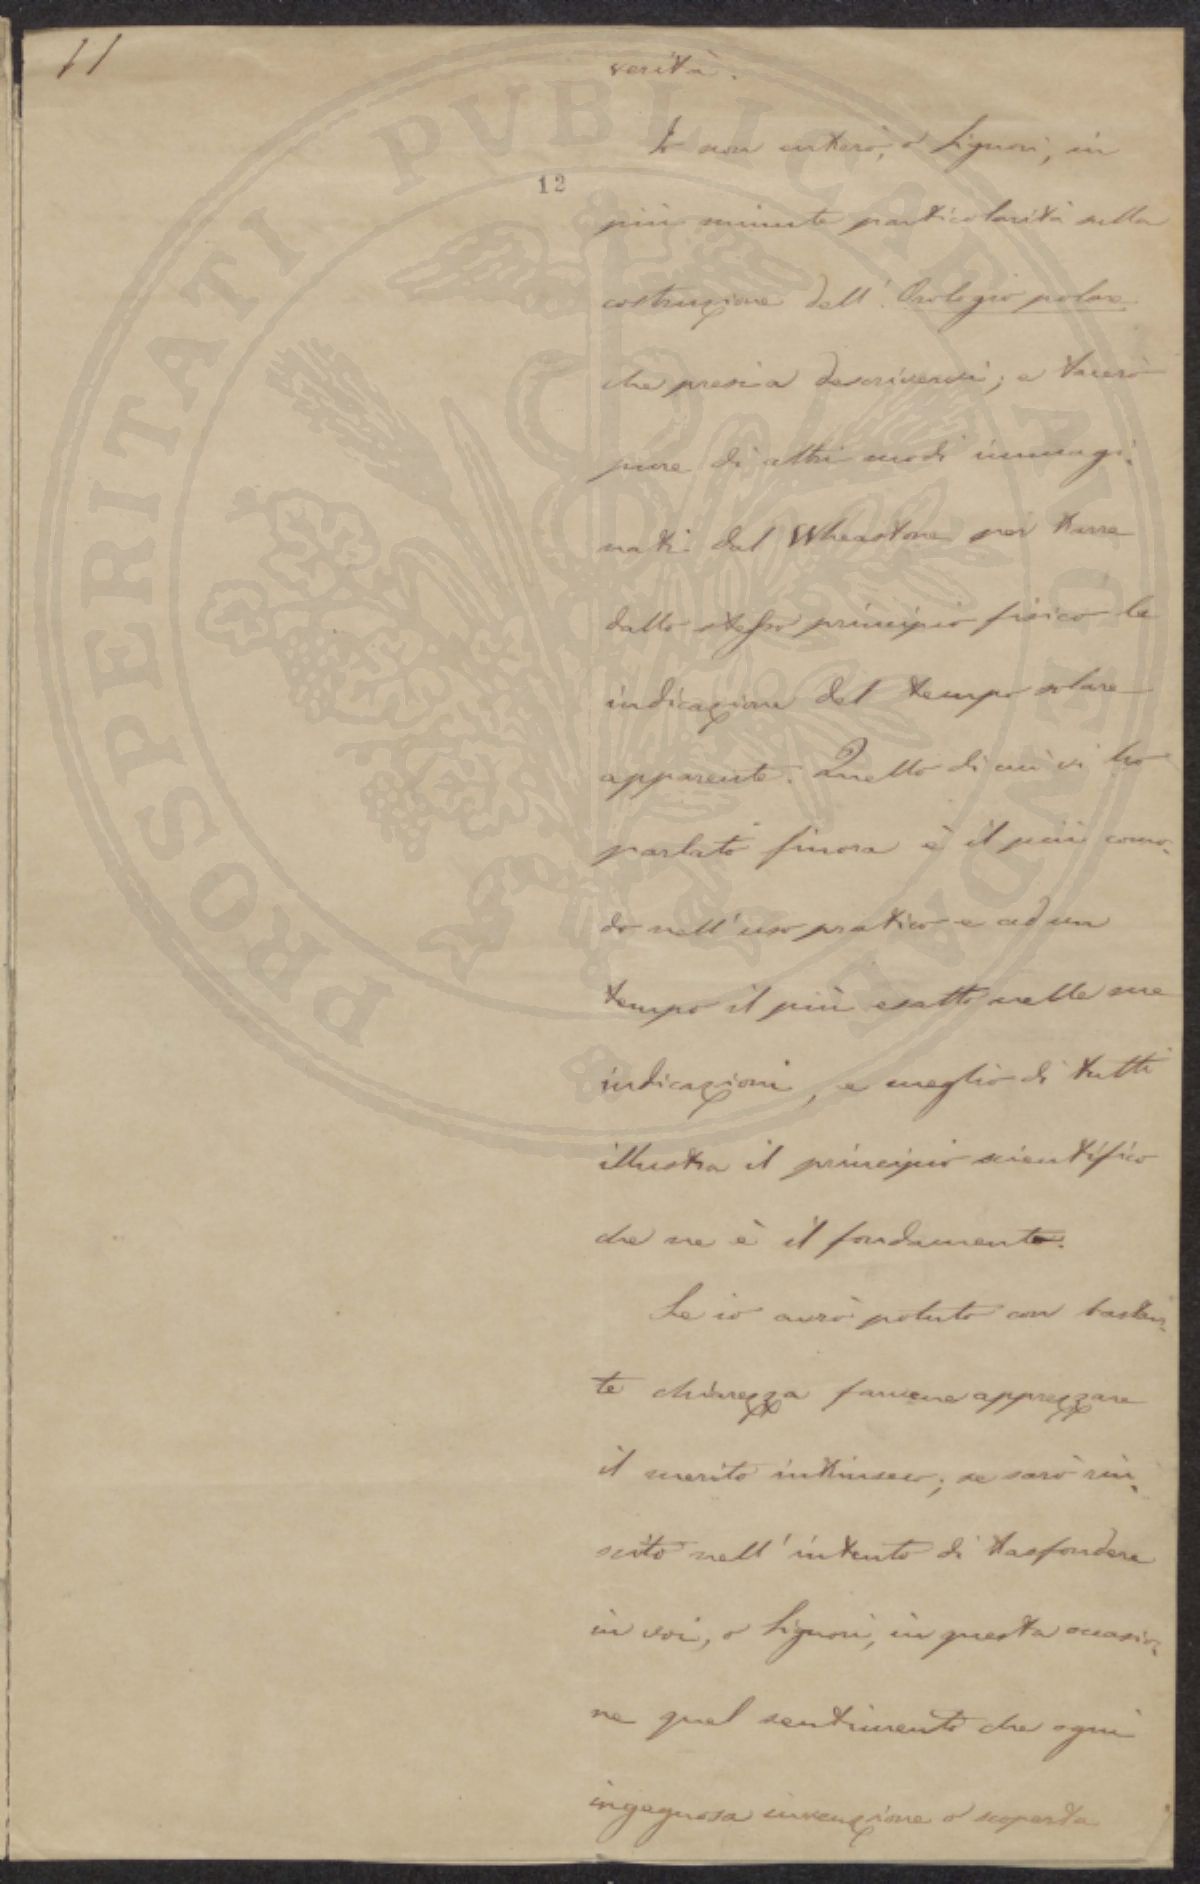 11
verità.
Io non entrerò, o Signori, in
12
più minute particolarità sulla
costruzione dell'Orologio polare
che presi a descrivervi; e tacerò
pure di altri modi immagi-
nati dal Wheastone per trarre
dallo stesso principio fisico le
indicazione del tempo solare
apparente. Quello di cui vi ho
parlato finora è il più como-
do nell'uso pratico e ad un
tempo il più esatto nelle sue
indicazioni, e meglio di tutti
illustra il principio scientifico
che ne è il fondamento.
Se io avrò potuto con bastan-
te chiarezza farvene apprezzare
il merito intrinseco; se sarò riu-
scito nell'intento di trasfondere
in voi, o Signori, in questa occasio-
ne quel sentimento che ogni
ingegnosa invenzione o scoperta
PROSPERITATI PUBLICAE AUGENDAE